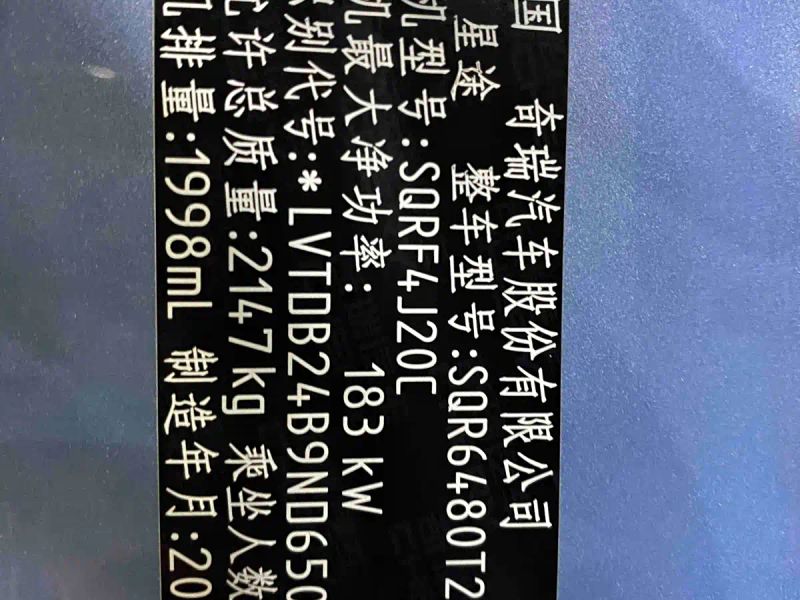 国 奇瑞汽车股份有限公司
星途 整车型号:SQR6480T2
机型号:SQRF4J20C
机最大净功率: 183 kW
识别代号:*LVTDB24B9ND650
允许总质量:2147kg 乘坐人数
机排量:1998mL 制造年月:20